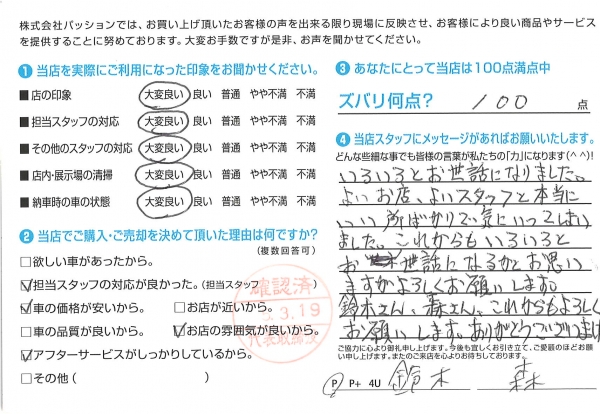 株式会社パッションでは、お買い上げ頂いたお客様の声を出来る限り現場に反映させ、お客様により良い商品やサービス
を提供することに努めております。大変お手数ですが是非、お声を聞かせてください。
❶ 当店を実際にご利用になった印象をお聞かせください。
■ 店の印象 大変良い 良い 普通 やや不満 不満
■ 担当スタッフの対応 大変良い 良い 普通 やや不満 不満
■ その他のスタッフの対応 大変良い 良い 普通 やや不満 不満
■ 店内・展示場の清掃 大変良い 良い 普通 やや不満 不満
■ 納車時の車の状態 大変良い 良い 普通 やや不満 不満
❷ 当店でご購入・ご売却を決めて頂いた理由は何ですか?
(複数回答可)
□欲しい車があったから。
☑担当スタッフの対応が良かった。(担当スタッフ
☑車の価格が安いから。 □お店が近いから。
□車の品質が良いから。 ☑お店の雰囲気が良いから。
☑アフターサービスがしっかりしているから。
□その他 ( )
確認済
3.19
代表取締役
❸ あなたにとって当店は100点満点中
ズバリ何点? 100 点
❹ 当店スタッフにメッセージがあればお願いいたします。
どんな些細な事でも皆様の言葉が私たちの「力」になります(^^)!
いろいろとお世話になりました。
よいお店、よいスタッフと本当に
いい所ばかりで気にいってしまい
ました。これからもいろいろと
お世話になるかとお思い
ますがよろしくお願いします。
鈴木さん、森さん、これからもよろしく
お願いします。ありがとうございます
ご協力に心より御礼申し上げます。今後も宜しくお引き立て、ご愛顧のほどお願
い申し上げます。またのご来店を心よりお待ちしております。
P P+ 4U 鈴木 森